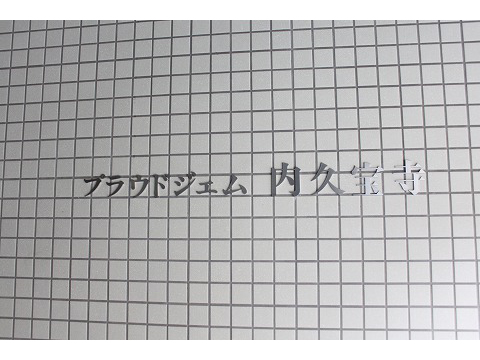 プラウドジェム 内久宝寺